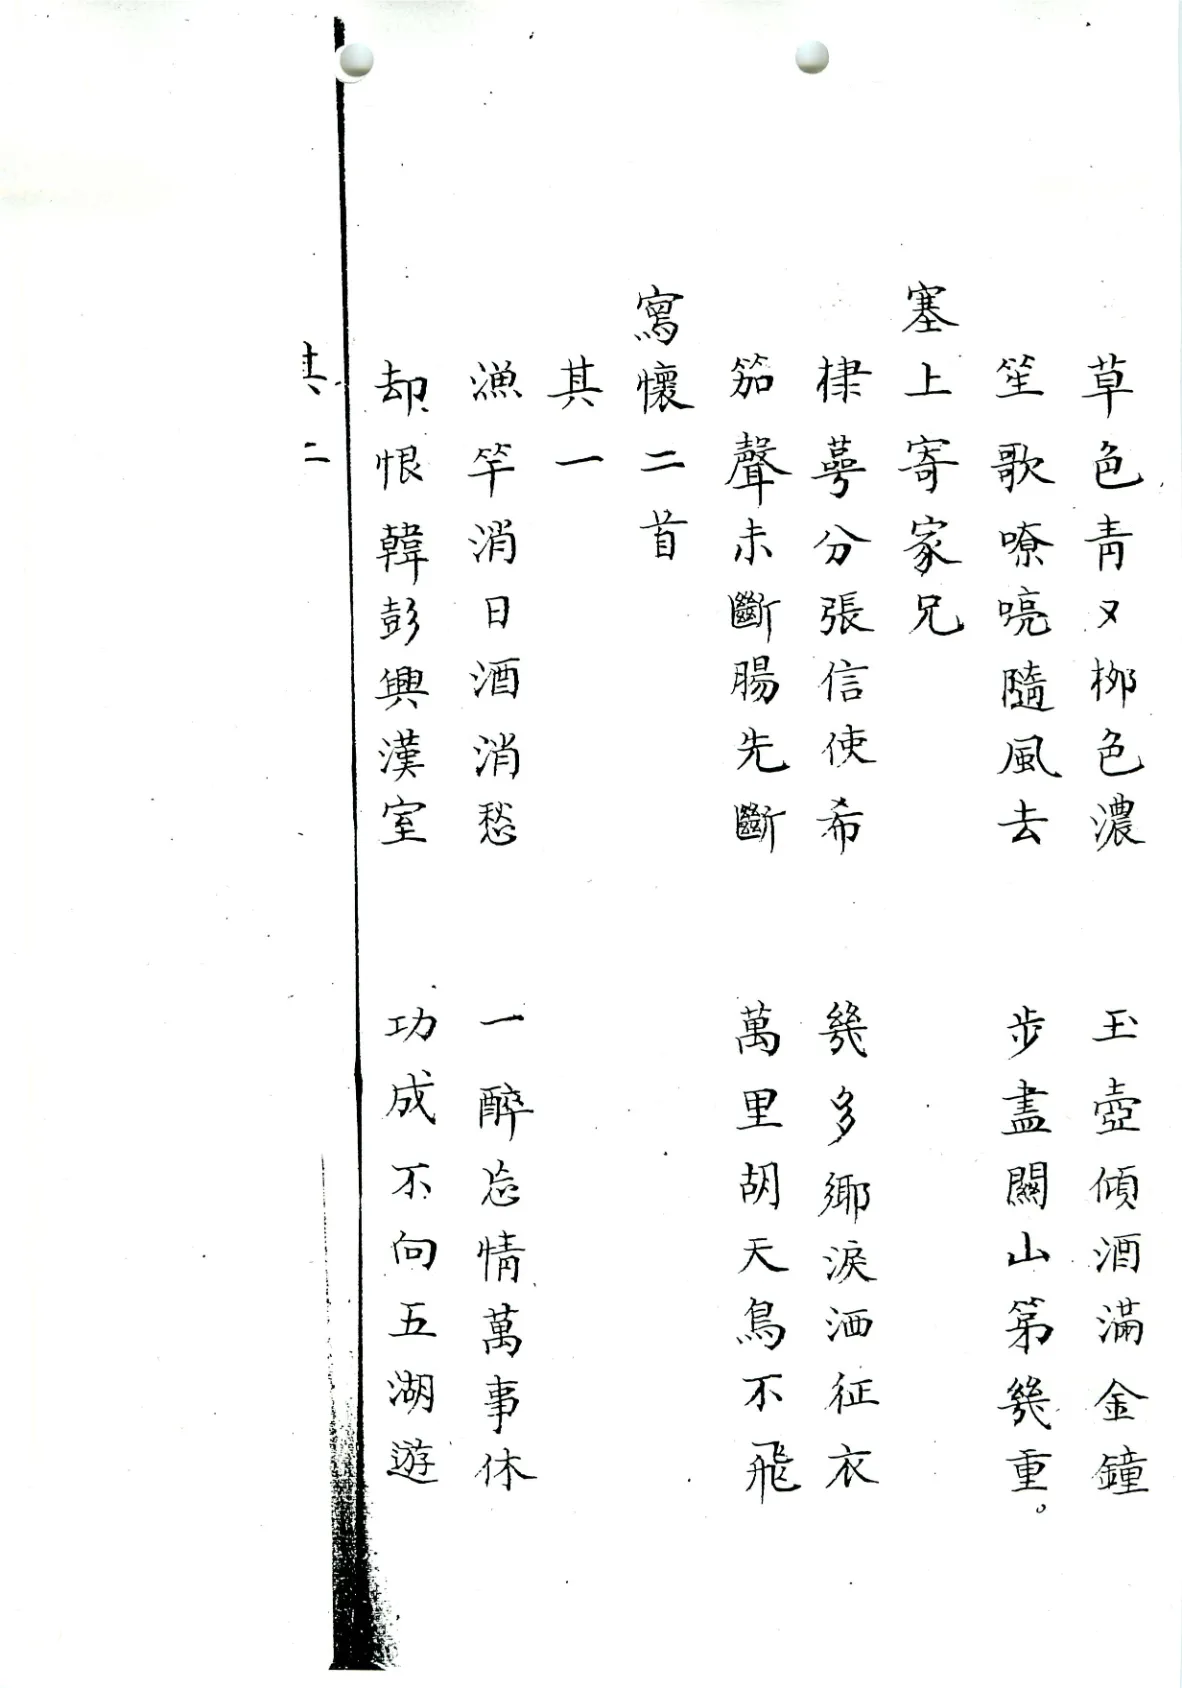 草色青又柳色濃　玉壺傾酒滿金鐘
笙歌嘹喨隨風去　步盡關山第幾重。
塞上寄家兄
棣萼分張信使希　幾多鄉淚洒征衣
笳聲未斷腸先斷　萬里胡天鳥不飛
寫懷二首
其一
漁竿消日酒消愁　一醉忘情萬事休
却恨韓彭興漢室　功成不向五湖遊
其二